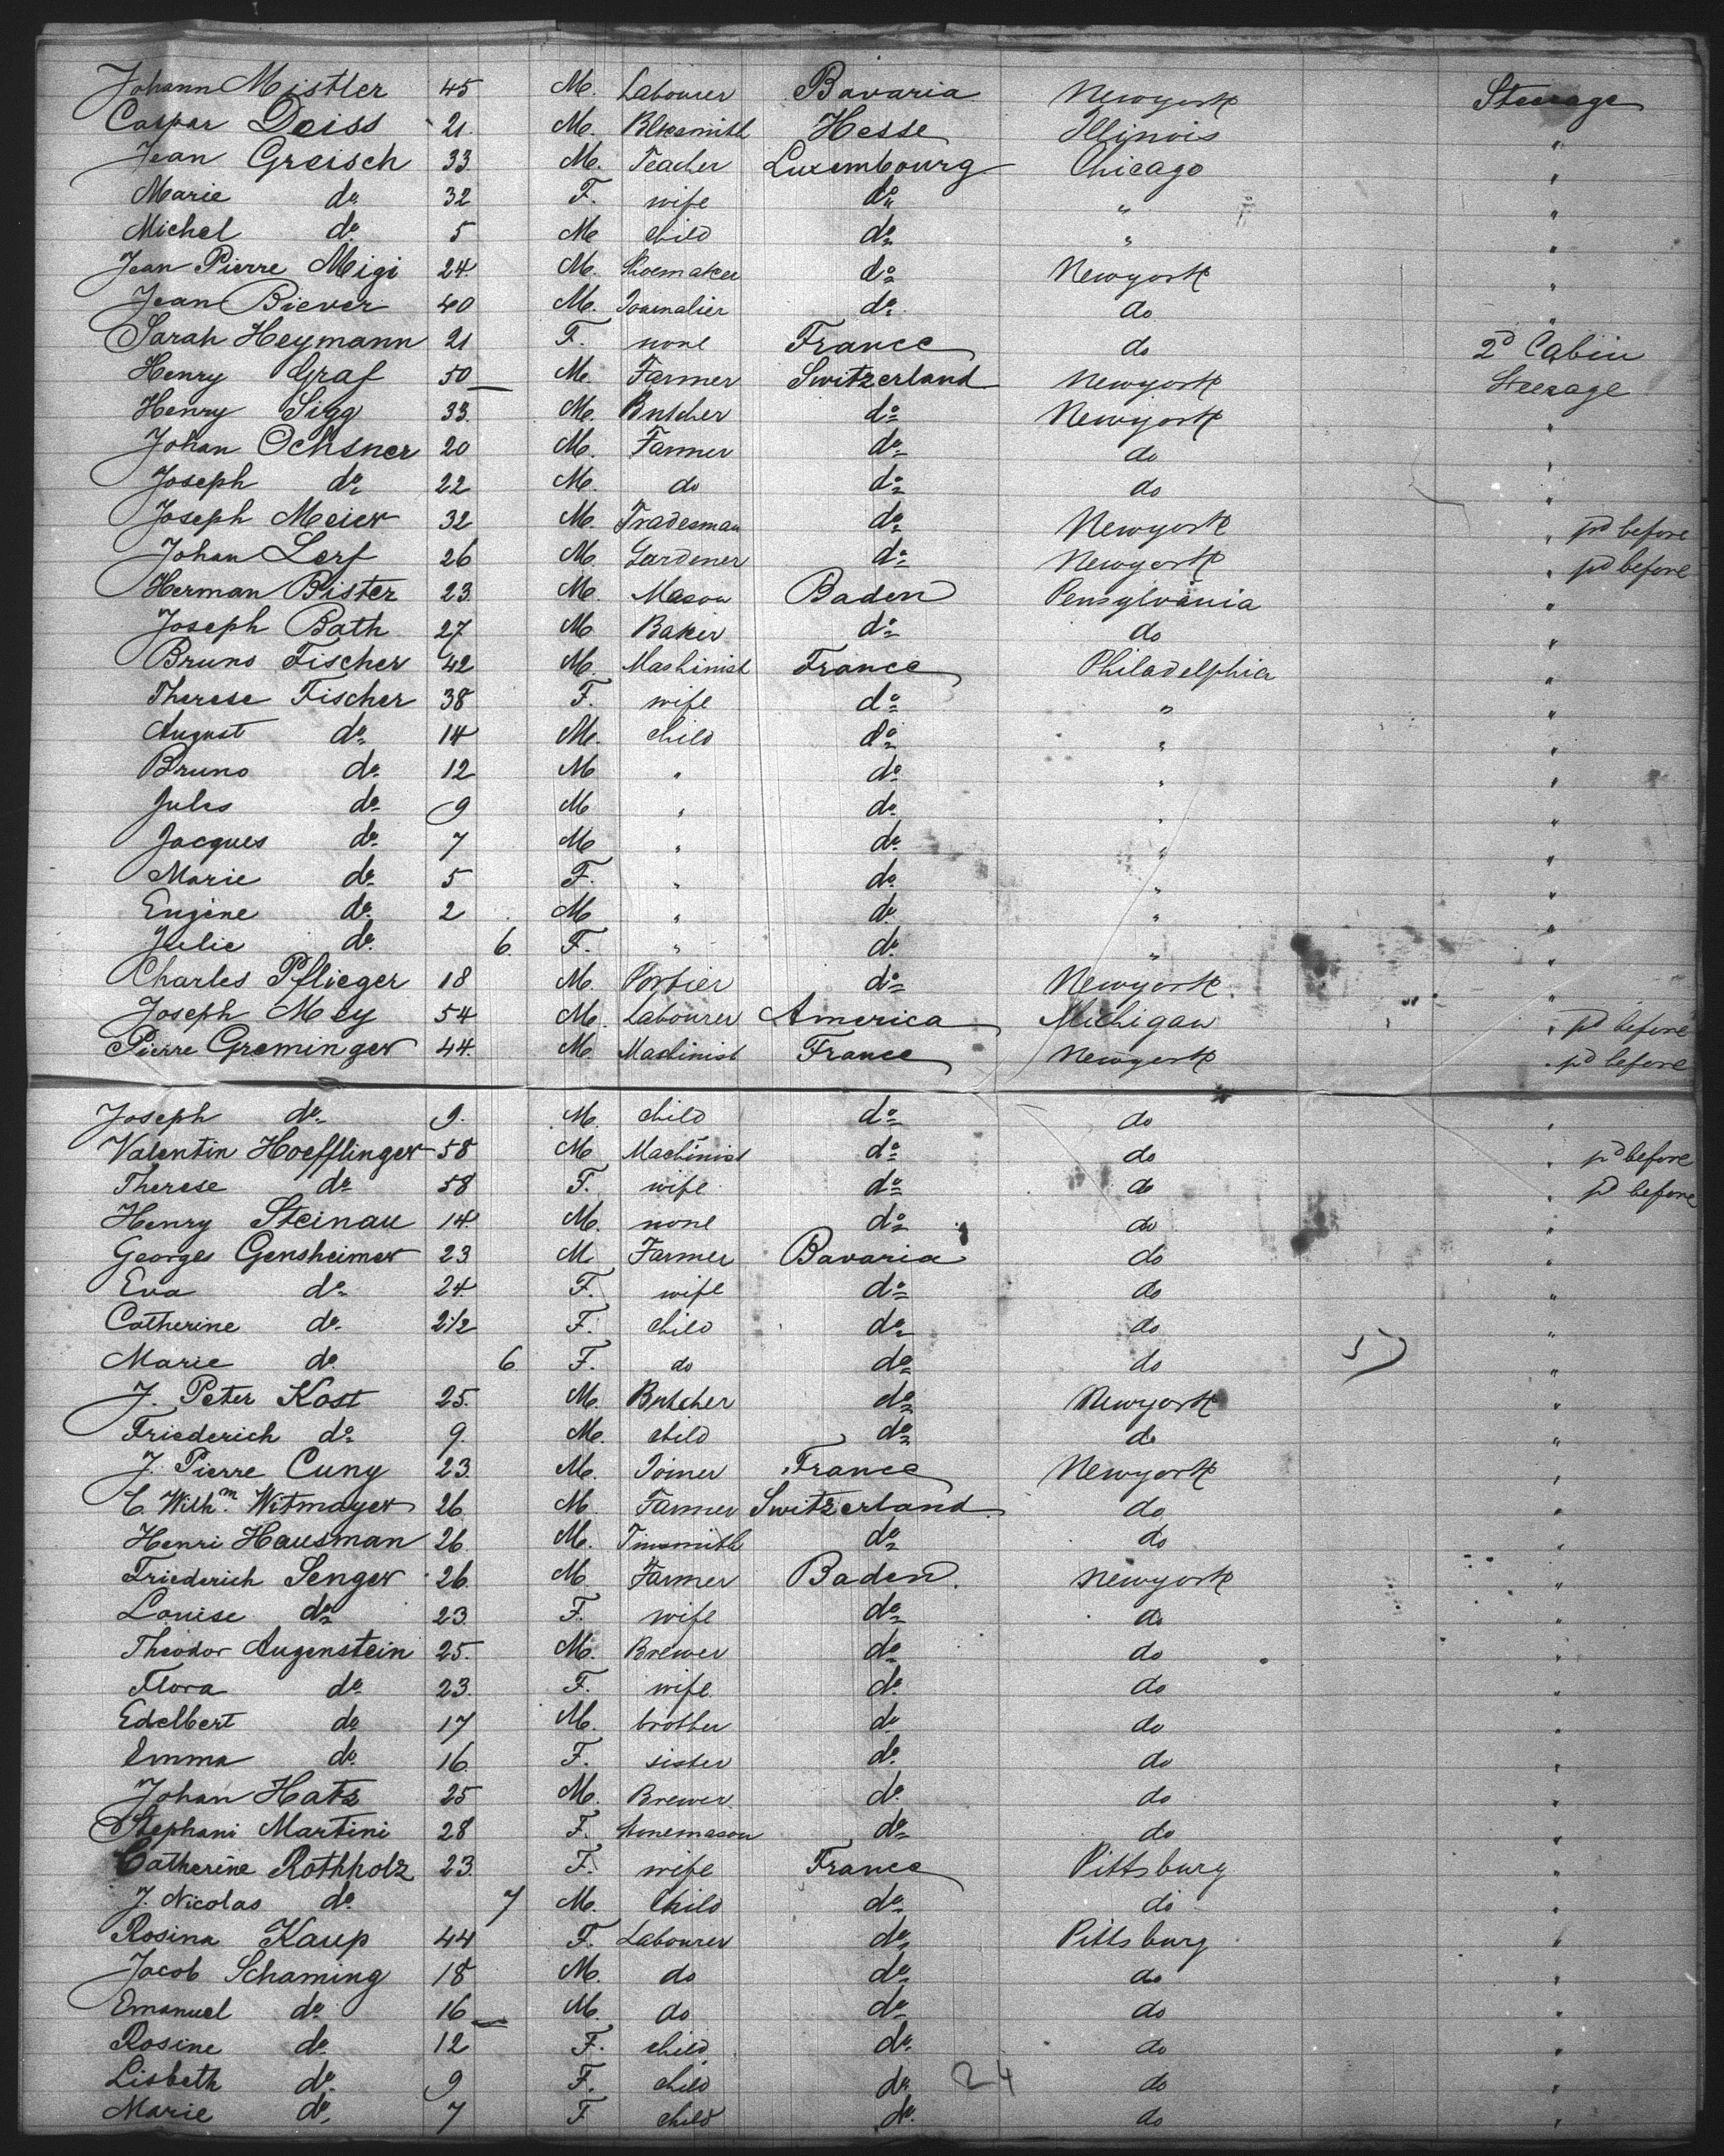 Johann Mistler 45 M. Labourer Bavaria Newyork Steerage
Caspar Deiss 21. M. Blksmith Hesse Illinois "
Jean Greisch 33. M. Teacher Luxembourg Chicago "
Marie do 32 F. wife do " "
Michel do 5 M child do " "
Jean Pierre Migi 24. M. Shoemaker do Newyork "
Jean Biever 40 M. Journalier do do "
Sarah Heymann 21 F. none France do 2d Cabin
Henry Graf 50 M. Farmer Switzerland Newyork Steerage
Henry Sigg 33. M. Butcher do Newyork "
Johan Ochsner 20 M. Farmer do do "
Joseph do 22 M. do do do "
Joseph Meier 32 M. Tradesman do Newyork " pd before
Johan Lerf 26 M. Gardener do Newyork " pd before
Herman Bister 23. M. Mason Baden Pensylvania "
Joseph Bath 27 M Baker do do "
Bruno Fischer 42 M. Mashinist France Philadelphia "
Therese Fischer 38 F. wife do " "
August do 14 M. child do " "
Bruno do 12 M " do " "
Jules do 9 M " do " "
Jacques do 7 M " do " "
Marie do 5 F. " do " "
Eugène do 2 M " do " "
Julie do 6. F. " do " "
Charles Pflieger 18 M. Portier do Newyork. "
Joseph Mey 54 M. Labourer America Michigan " pd before
Pierre Greminger 44. M. Mashinist France Newyork " pd before
Joseph do 9. M. child do do "
Valentin Hoefflinger 58 M Machinist do do " pd before
Therese do 58 F. wife do do " pd before
Henry Steinau 14 M. none do do "
Georges Gensheimer 23 M Farmer Bavaria do "
Eva do 24 F. wife do do "
Catherine do 2 1/2 F. child do do "
Marie do 6 F. do do do "
J. Peter Kost 25. M. Butcher do Newyork "
Friederich do 9. M. child do do "
J. Pierre Cuny 23. M. Joiner France Newyork "
C Wilhm. Witmayer 26. M. Farmer Switzerland do "
Henri Hausman 26. M. Tinsmith do do "
Friederich Senger 26. M Farmer Baden. Newyork "
Louise do 23 F. wife do do "
Theodor Augenstein 25. M. Brewer do do "
Flora do 23. F. wife do do "
Edelbert do 17 M. brother do do "
Emma do 16. F. sister do do "
Johan Hatz 25 M. Brewer do do "
Stephani Martini 28 F. Stonemason do do "
Catherine Rothholz 23. F. wife France Pittsburg "
J. Nicolas do 7 M. Child do do "
Rosina Kaup 44 F. Labourer do Pittsburg "
Jacob Schaming 18 M. do do do "
Emanuel do 16 M. do do do "
Rosine do 12 F. child do do "
Lisbeth do 9 F. child do 24 do "
Marie do 7 F child do do "